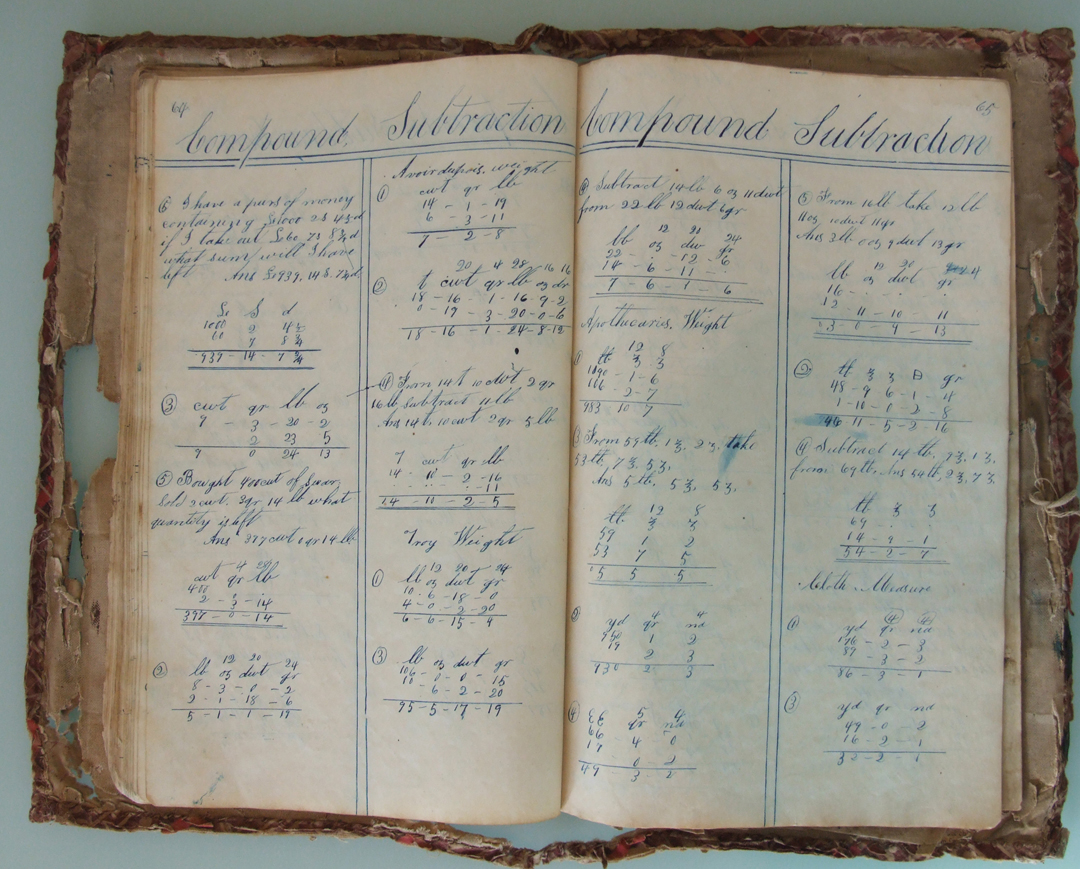 64
Compound Subtraction
6 I have a purs of money
containing £1000 2s 4½d
if I take out £60 7s 8¾d
what sum will I have
left Ans £939. 14s. 7¾d.
£ S d
1000 2 4½
60 7 8¾
939 - 14 - 7 ¾
3 cwt qr lb oz
9 - 3 - 20 - 2
2 23 5
9 0 24 13
5 Bought 400cwt of
Sold 2cwt. 3qr, 14 lb what
quantity is left
Ans 397cwt 0qr 14 lb
4 28
cwt qr lb
400
2 - 3 - 14
397 - 0 - 14
12 20 24
2 lb oz dwt gr
8 - 3 - 0 - 2
3 - 1 - 18 - 6
5 - 1 - 1 - 19
Avoirdupois. weight
1 cwt qr lb
14 - 1 - 19
6 - 3 - 11
7 - 2 - 8
20 4 28 16 16
2 t cwt qr lb oz dr
18 - 16 - 1 - 16 - 9 - 2
0 - 19 - 3 - 20 - 0 - 6
18 - 16 - 1 - 24 - 8 - 12
4 From 14t 10 cwt 2 qr
16 lb Subtract 11 lb
Ans 14t. 10cwt 2qr 5 lb
T cwt qr lb
14 - 10 - 2 - 16
11
14 - 10 - 2 - 5
Troy Weight
12 20 24
1 lb oz dwt gr
10 - 6 - 18 - 0
4 - 0 - 2 - 20
6 - 6 - 15 - 9
3 lb oz dwt gr
106
10 - 0 - 0 - 15
- 6 - 2 - 20
95 - 5 - 17 - 19
65
Compound Subtraction
4 Subtract 14 lb 6 oz 11 dwt
from 22 lb 12 dwt 6gr
12 20 24
lb oz dw gr
22 - . - 12 - 6
14 - 6 - 11 -
7 - 6 - 1 - 6
Apothecaris. Weight
12 8
1 ℔ ℥ ʒ
1190 - 1 - 6
116 - 2 - 7
983 10 7
3 From 59 ℔, 1 ℥, 2 ʒ, take
53 ℔, 7 ℥, 5 ʒ,
Ans 5 ℔, 5 ℥, 5 ʒ,
12 8
℔ ℥ ʒ
59 1 2
53 7 5
5 5 5
4 4
2 yd qr na
950 1 2
19 2 3
930 2 3
5 4
4 EE qr na
66
17 4 0
0 - 2
49 3 2
5 From 16 lb take 12 lb
11 oz 10 dwt 11gr
Ans 3 lb 0 oz 9 dwt 13 gr
12 20 24
lb oz dwt gr
16 - . . .
12 - 11 - 10 - 11
3 - 0 - 9 - 13
2 ℔ ℥ ʒ ℈ gr
48 - 9 6 - 1 - 4
1 - 10 - 0 - 2 - 8
46 11 - 5 - 2 - 16
4 Subtract 14 ℔, 9 ℥, 1 ʒ,
from 69 ℔. Ans 54 ℔, 2 ℥, 7 ʒ
℔ ℥ ʒ
69 - . .
14 - 9 - 1
54 - 2 - 7
Cloth Measure
4 4
1 yd qr na
176 - 2 - 3
89 - 3 - 2
86 - 3 - 1
3 yd qr na
49 - 0 - 2
16 - 2 - 1
32 - 2 - 1